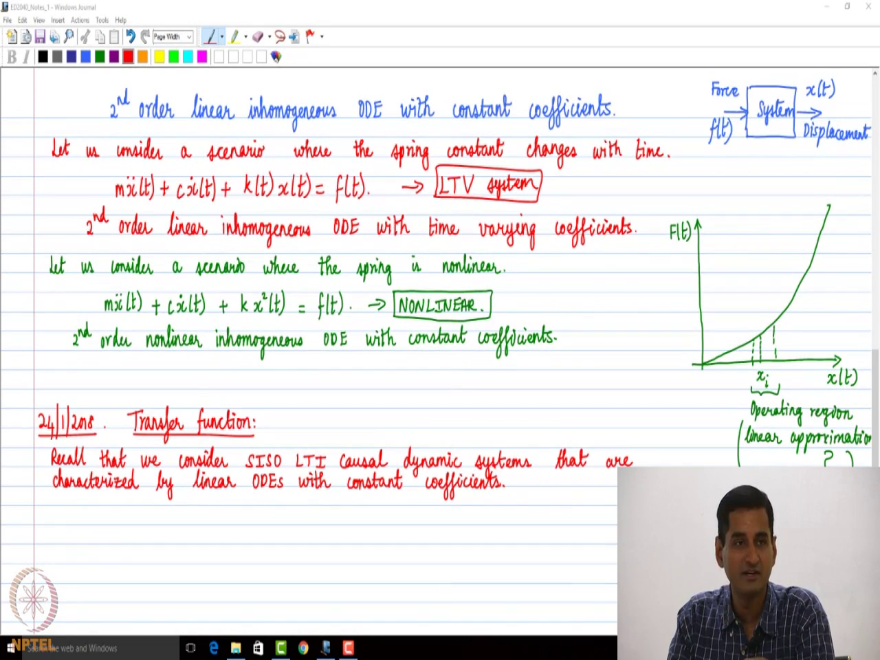 ED2040_Notes_1 - Windows Journal
File Edit View Insert Actions Tools Help
Page Width
B I
2nd order linear inhomogeneous ODE with constant coefficients.
Force
f(t)
System
x(t)
Displacement
Let us consider a scenario where the spring constant changes with time.
mẍ(t) + cẋ(t) + k(t) x(t) = f(t). → LTV system
2nd order linear inhomogeneous ODE with time varying coefficients.
Let us consider a scenario where the spring is nonlinear.
mẍ(t) + cẋ(t) + k x²(t) = f(t). → NONLINEAR.
2nd order nonlinear inhomogeneous ODE with constant coefficients.
F(t)
xi
x(t)
Operating region
(linear approximation
? )
24/1/2018. Transfer function:
Recall that we consider SISO LTI causal dynamic systems that are
characterized by linear ODEs with constant coefficients.
NPTEL
the web and Windows